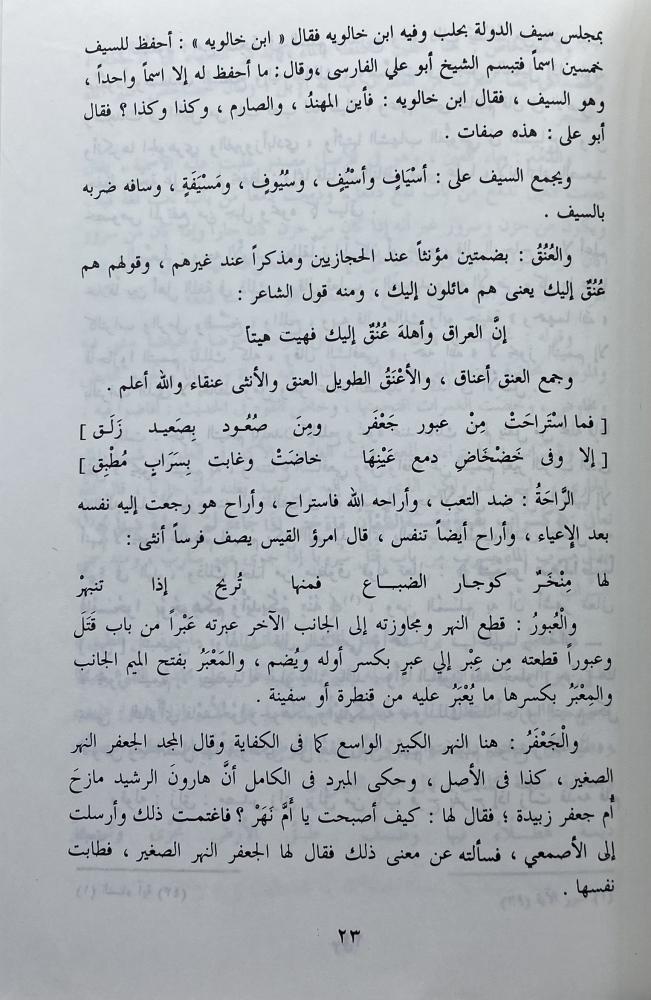 بمجلس سيف الدولة بحلب وفيه ابن خالويه فقال « ابن خالويه » : أحفظ للسيف
خمسين اسماً فتبسم الشيخ أبو علي الفارسى ،وقال: ما أحفظ له إلا اسماً واحداً ،
وهو السيف ، فقال ابن خالويه : فأين المهندُ ، والصارم ، وكذا وكذا ؟ فقال
أبو على : هذه صفات .
ويجمع السيف على : أسْيَافٍ وأسْيُفٍ ، وسُيُوفٍ ، ومَسْيَفَةٍ ، وسافه ضربه
بالسيف .
والعُنُقُ : بضمتين مؤنثاً عند الحجازيين ومذكراً عند غيرهم ، وقولهم هم
عُنُقٌ إليك يعنى هم مائلون إليك ، ومنه قول الشاعر :
إنَّ العراق وأهلهَ عُنُقٌ إليك فهيت هيتاً
وجمع العنق أعناق ، والأعْنَقُ الطويل العنق والأنثى عنقاء والله أعلم .
[ فما اسْتَراحَتْ مِنْ عبور جَعْفَر ومِنَ صُعُـود بِصَعيـد زَلَـق ]
[ إلا وفى خَضْخَاضِ دمع عَيْنِهَا خاضَتْ وغابت بِسَرَابٍ مُطْبِق ]
الرَّاحَةُ : ضد التعب ، وأراحه الله فاستراح ، وأراح هو رجعت إليه نفسه
بعد الإعياء ، وأراح أيضاً تنفس ، قال امرؤ القيس يصف فرساً أنثى :
لها مِنْخَـرٌ كوجـار الضبـــاع فمنها تُريح إذا تنبهرْ
والْعُبورُ : قطع النهر ومجاوزته إلى الجانب الآخر عبرته عَبْراً من باب قَتَلَ
وعبوراً قطعته مِن عِبْر إلي عبرٍ بكسر أوله ويُضم ، والمَعْبَرُ بفتح الميم الجانب
والمِعْبَرُ بكسرها ما يُعْبَرُ عليه من قنطرة أو سفينة .
والْجَعْفَرُ : هنا النهر الكبير الواسع كما فى الكفاية وقال المجد الجعفر النهر
الصغير ، كذا فى الأصل ، وحكى المبرد فى الكامل أنَّ هارونَ الرشيد مازحَ
أم جعفر زبيدة ؛ فقال لها : كيف أصبحت يا أُمَّ نَهَرْ ؟ فاغتمت ذلك وأرسلت
إلى الأصمعي ، فسألته عن معنى ذلك فقال لها الجعفر النهر الصغير ، فطابت
نفسها .
٢٣